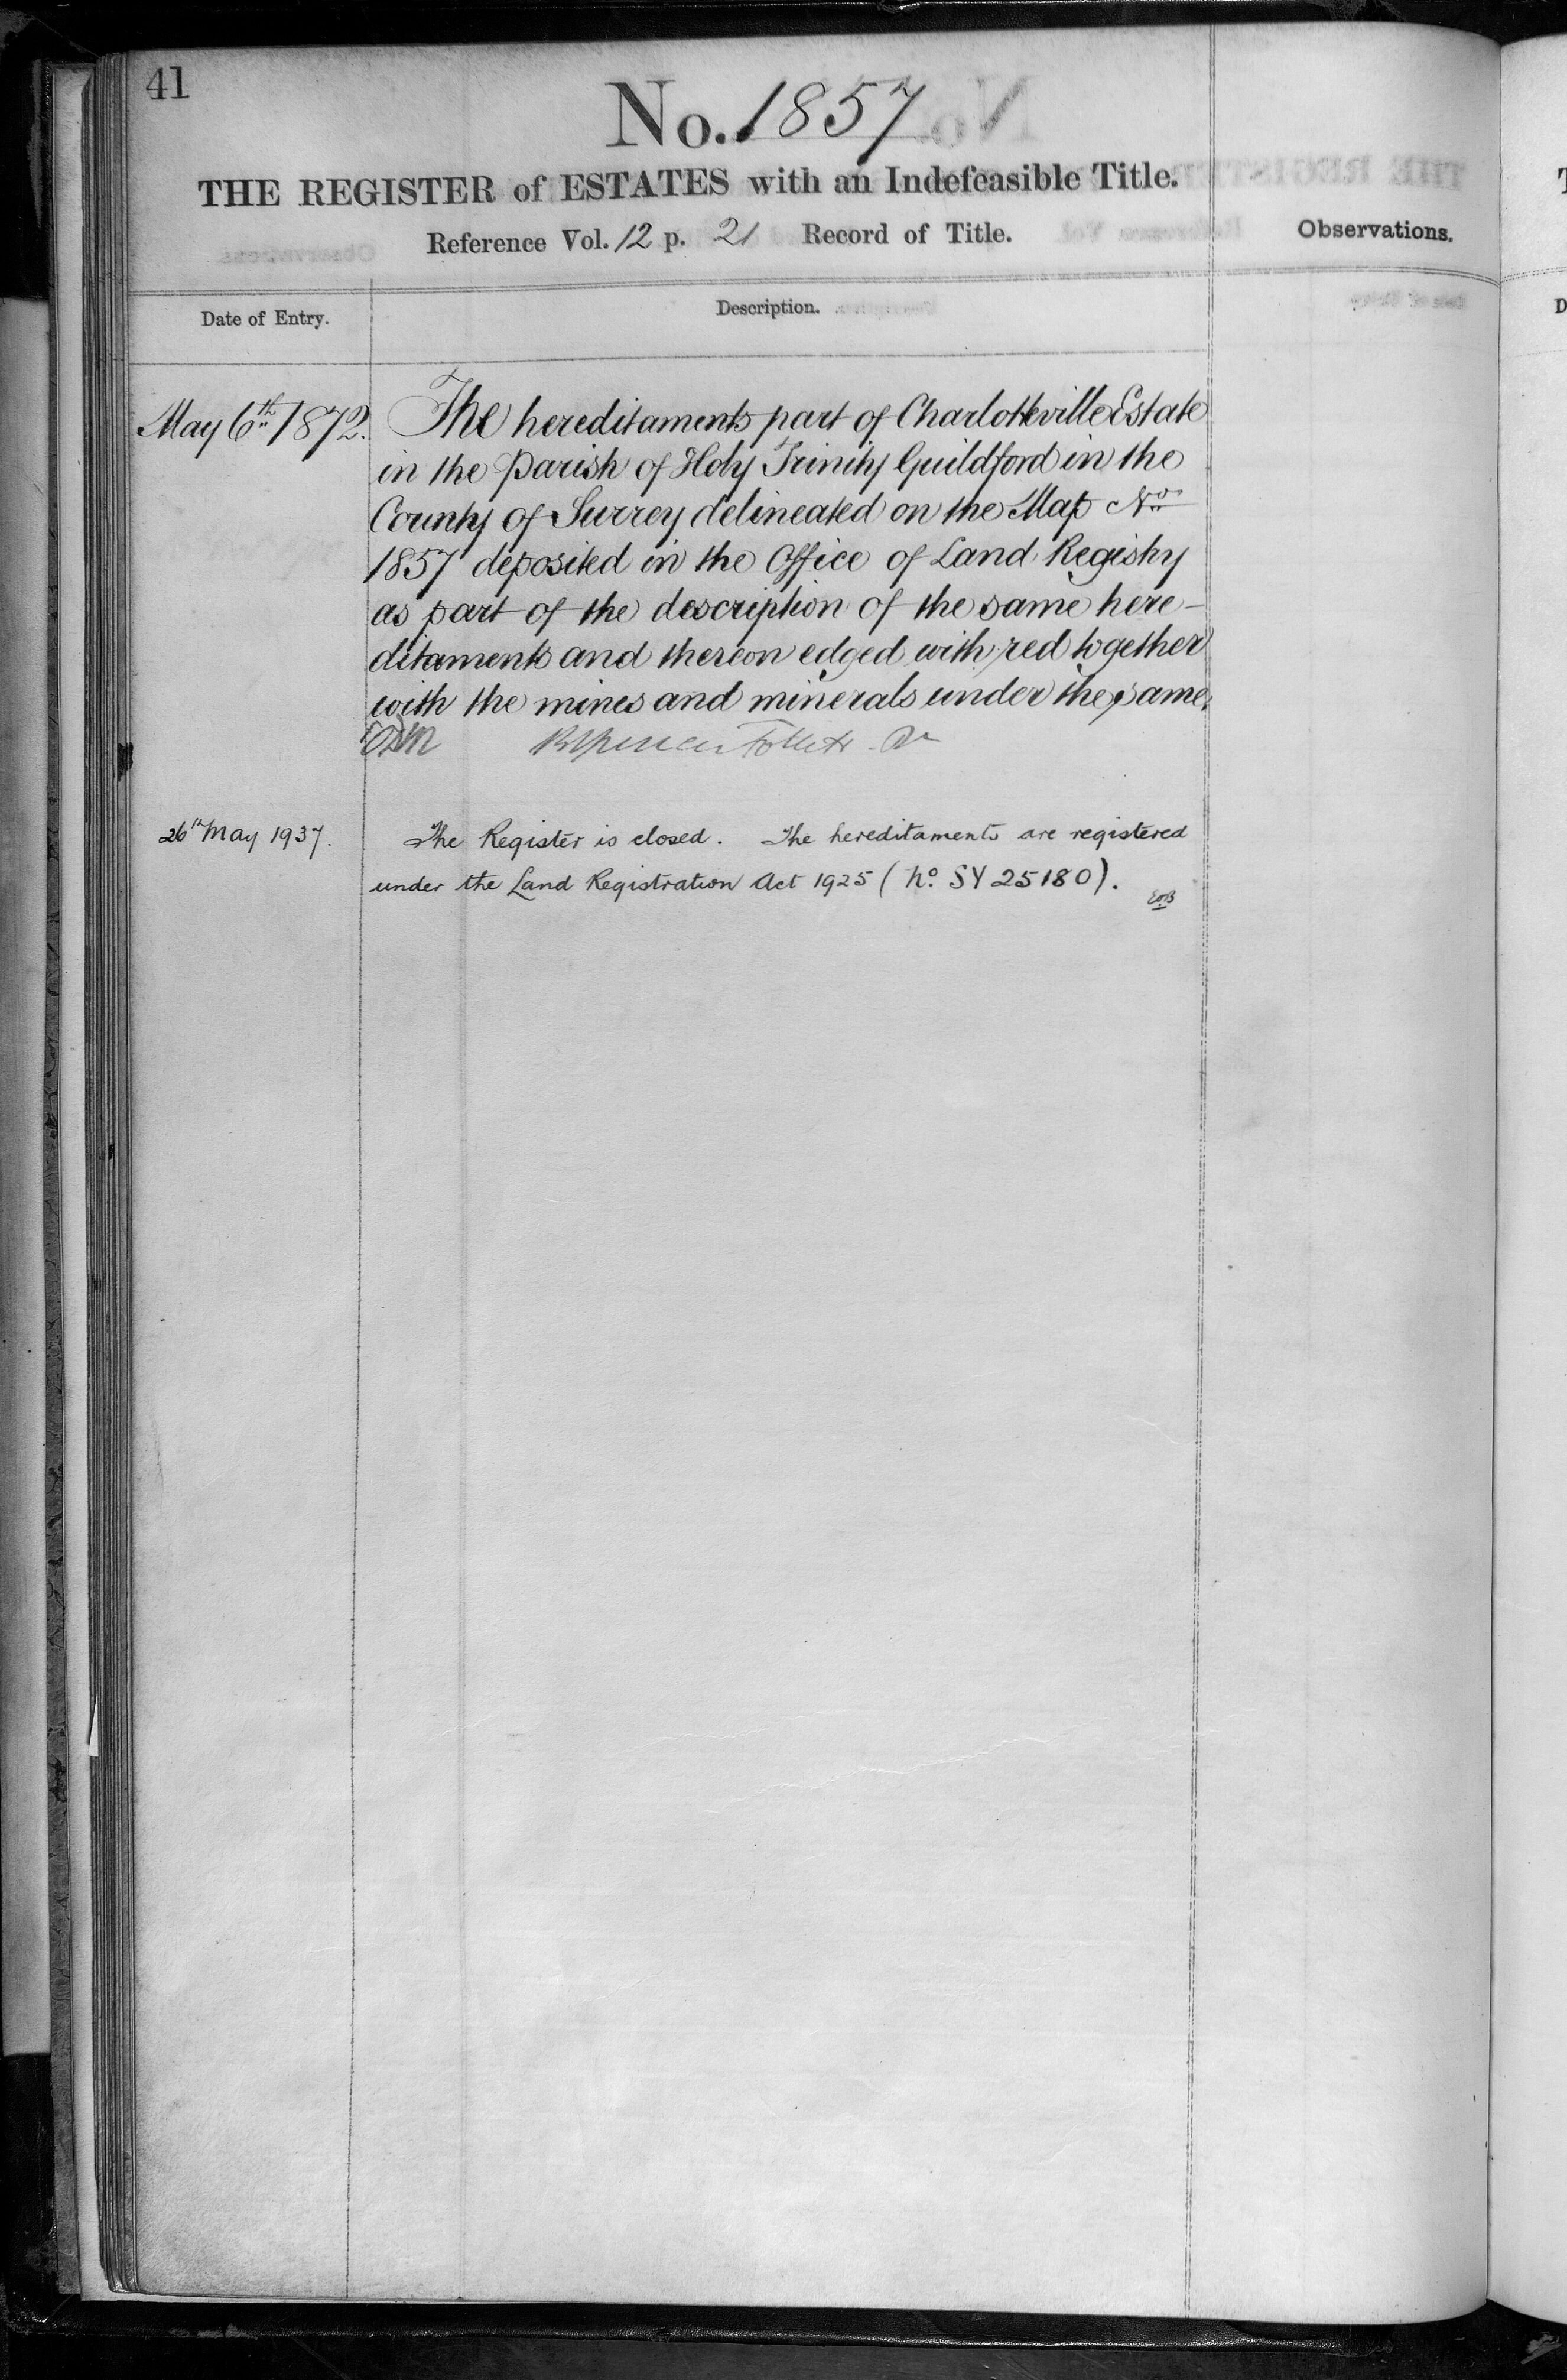 41
No. 1857
THE REGISTER of ESTATES with an Indefeasible Title.
Reference Vol. 12 p. 21 Record of Title.
Observations.
Date of Entry.
Description.
May 6th 1872.
The hereditaments part of Charlotteville Estate
in the Parish of Holy Trinity Guildford in the
County of Surrey delineated on the Map No
1857 deposited in the Office of Land Registry
as part of the description of the same here-
ditaments and thereon edged with red together
with the mines and minerals under the same.
Follett
26th May 1937.
The Register is closed. The hereditaments are registered
under the Land Registration Act 1925 (No. SY 25180).